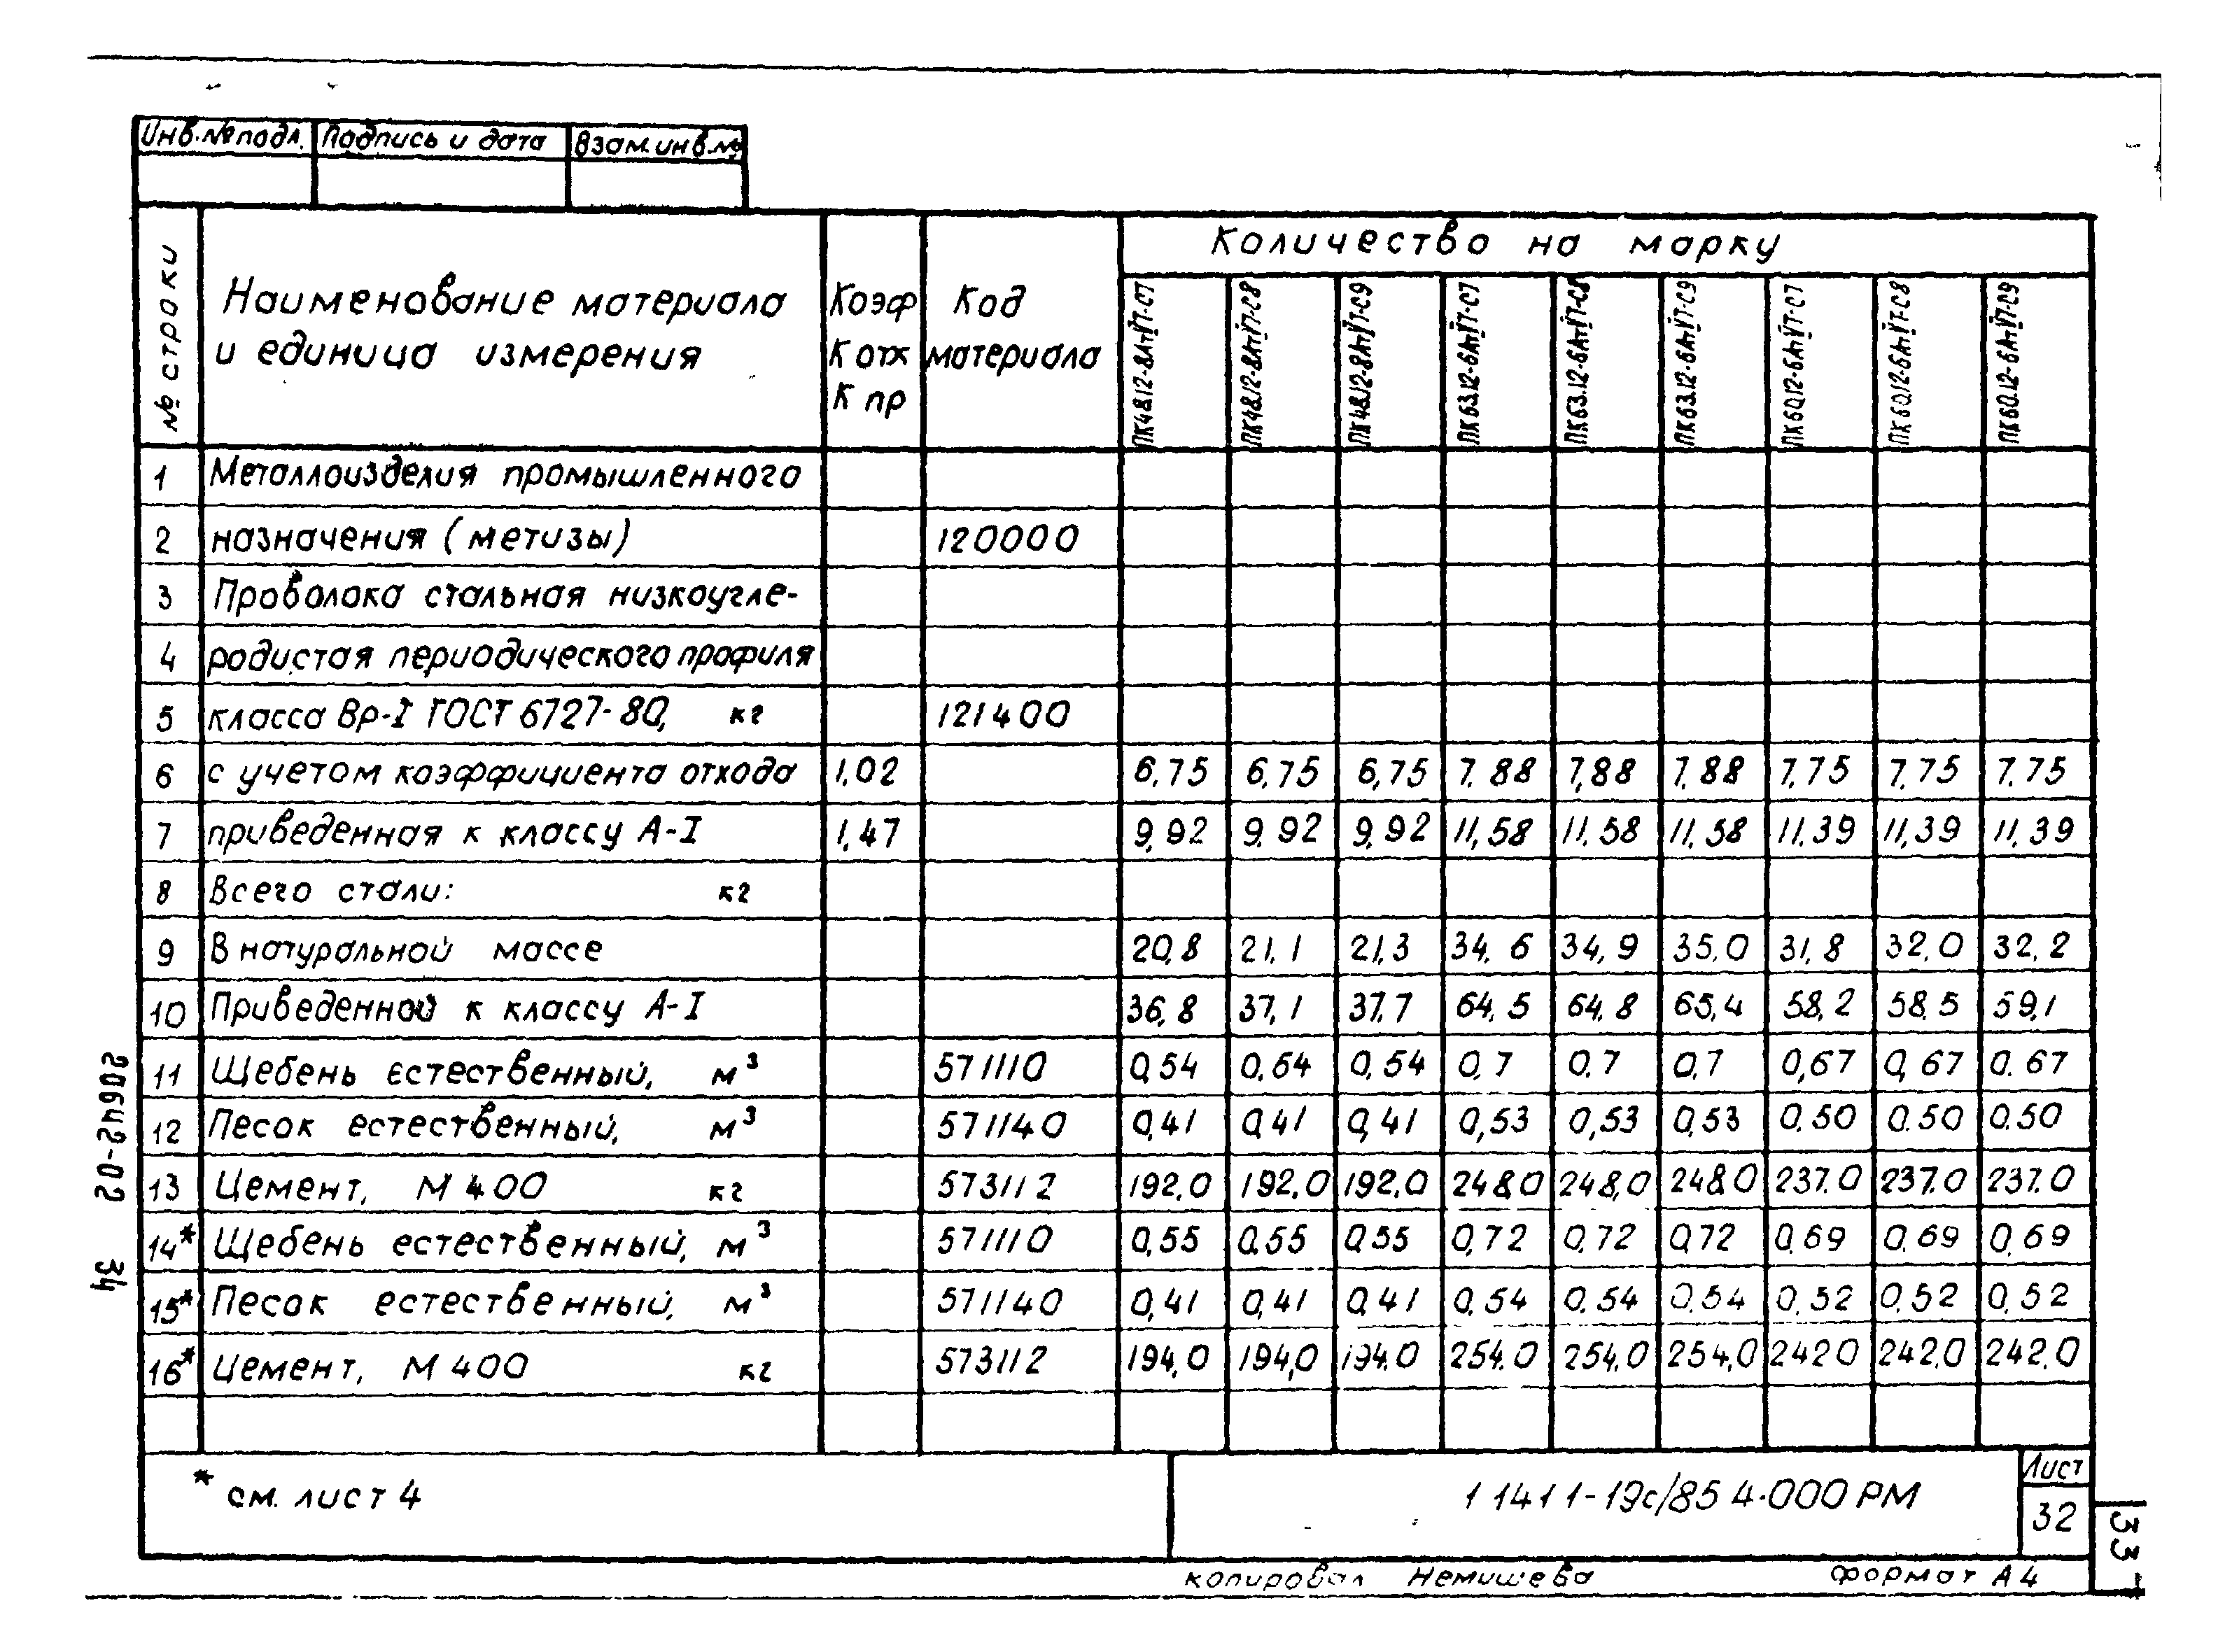 Инв.№подл. Подпись и дата Взам.инв.№
№ строки
Наименование материала
и единица измерения
Коэф
К отх
К пр
Код
материала
Количество на марку
ПК48.12-8АтVТ-С7 ПК48.12-8АтVТ-С8 ПК48.12-8АтVТ-С9 ПК63.12-6АтVТ-С7 ПК63.12-6АтVТ-С8 ПК63.12-6АтVТ-С9 ПК60.12-6АтVТ-С7 ПК60.12-6АтVТ-С8 ПК60.12-6АтVТ-С9
1 Металлоизделия промышленного
2 назначения (метизы) 120000
3 Проволока стальная низкоугле-
4 родистая периодического профиля
5 класса Вр-I ГОСТ 6727-80, кг 121400
6 с учетом коэффициента отхода 1,02 6,75 6,75 6,75 7,88 7,88 7,88 7,75 7,75 7,75
7 приведенная к классу А-I 1,47 9,92 9,92 9,92 11,58 11,58 11,58 11,39 11,39 11,39
8 Всего стали: кг
9 В натуральной массе 20,8 21,1 21,3 34,6 34,9 35,0 31,8 32,0 32,2
10 Приведенной к классу А-I 36,8 37,1 37,7 64,5 64,8 65,4 58,2 58,5 59,1
11 Щебень естественный, м³ 571110 0,54 0,54 0,54 0,7 0,7 0,7 0,67 0,67 0,67
12 Песок естественный, м³ 571140 0,41 0,41 0,41 0,53 0,53 0,53 0,50 0,50 0.50
13 Цемент, М 400 кг 573112 192,0 192,0 192,0 248,0 248,0 248,0 237,0 237,0 237,0
14* Щебень естественный, м³ 571110 0,55 0,55 0,55 0,72 0,72 0,72 0,69 0,69 0,69
15* Песок естественный, м³ 571140 0,41 0,41 0,41 0,54 0,54 0,54 0,52 0,52 0,52
16* Цемент, М 400 кг 573112 194,0 194,0 194,0 254,0 254,0 254,0 242,0 242,0 242,0
* см. лист 4
1 141 1-19с/85 4.000 РМ
Лист
32
копировал Немишева формат А4
20642-02 34
33